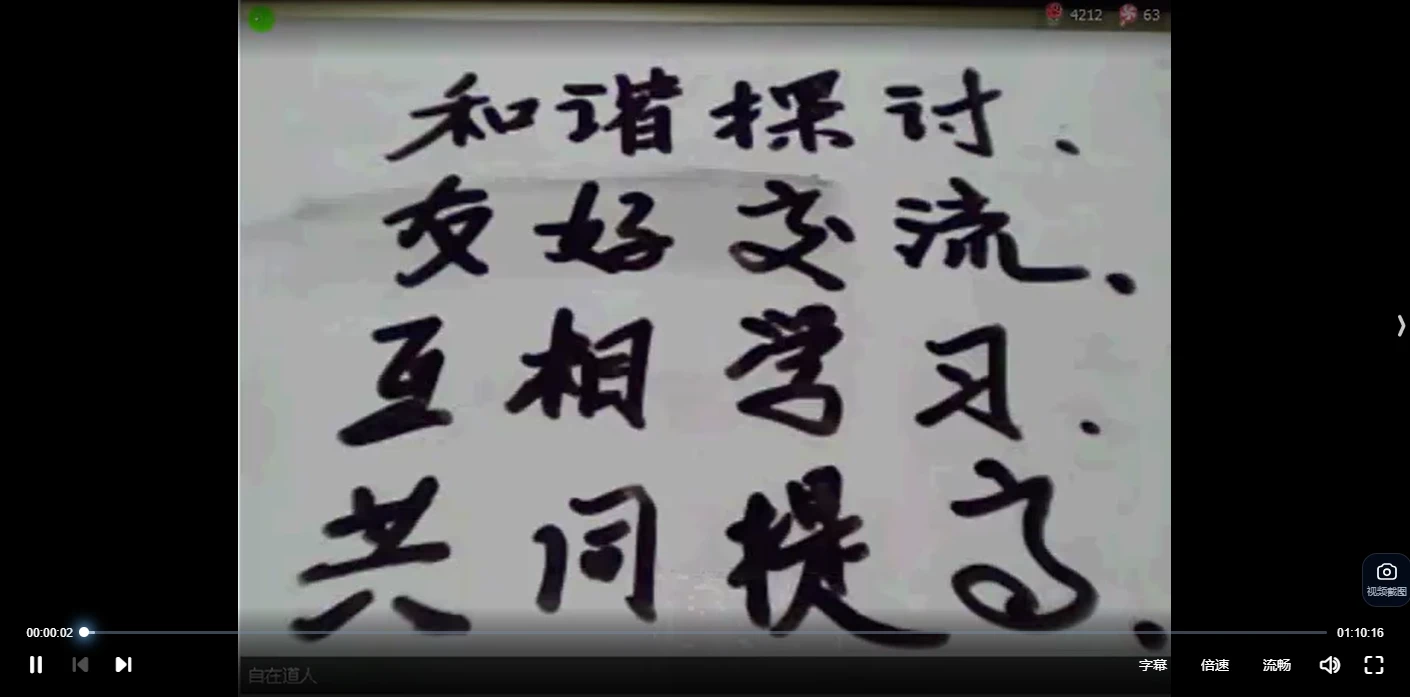 4212 63
和谐探讨、
友好交流、
互相学习、
共同提高、
视频截图
00:00:02 01:10:16
自在道人
字幕 倍速 流畅